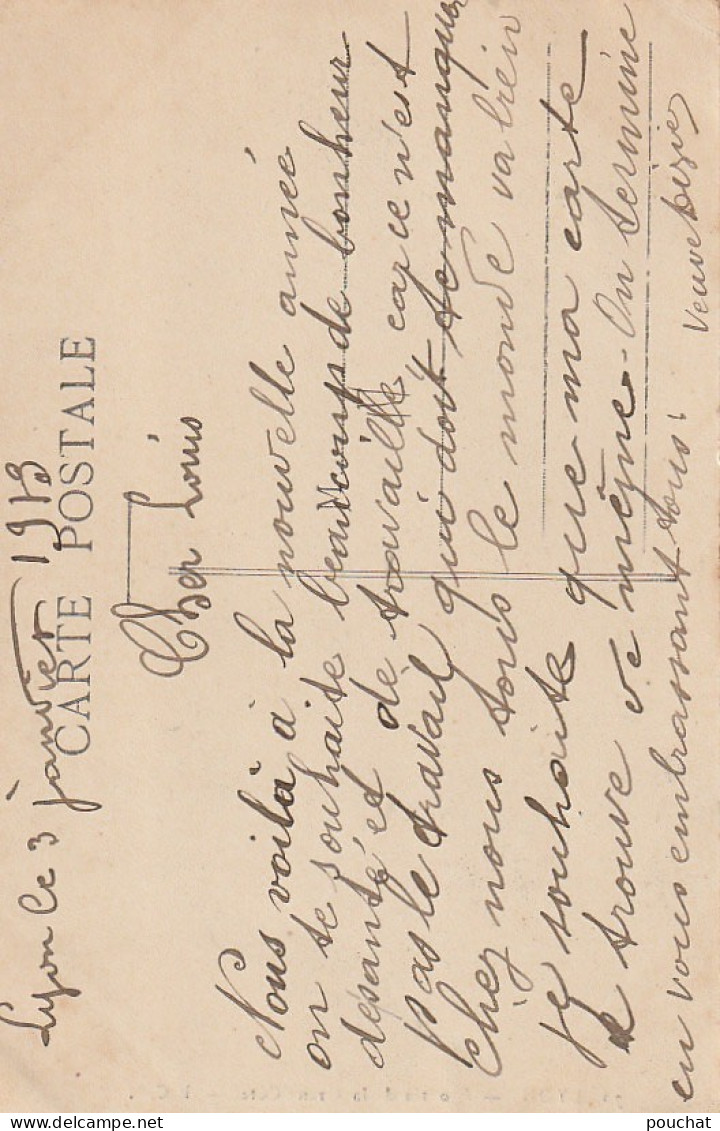 Lyon le 3 janvier 1913
CARTE POSTALE
Cher Louis
Nous voilà à la nouvelle année
on te souhaite beaucoup de bonheur
de santé et de travaille car ce n'est
pas le travail qui doit te manquer
Chez nous tous le monde va bien
je souhaite que ma carte
te trouve de même. On termine
en vous embrassant tous.
Veuve
pouchat
https://www.delcampe.net